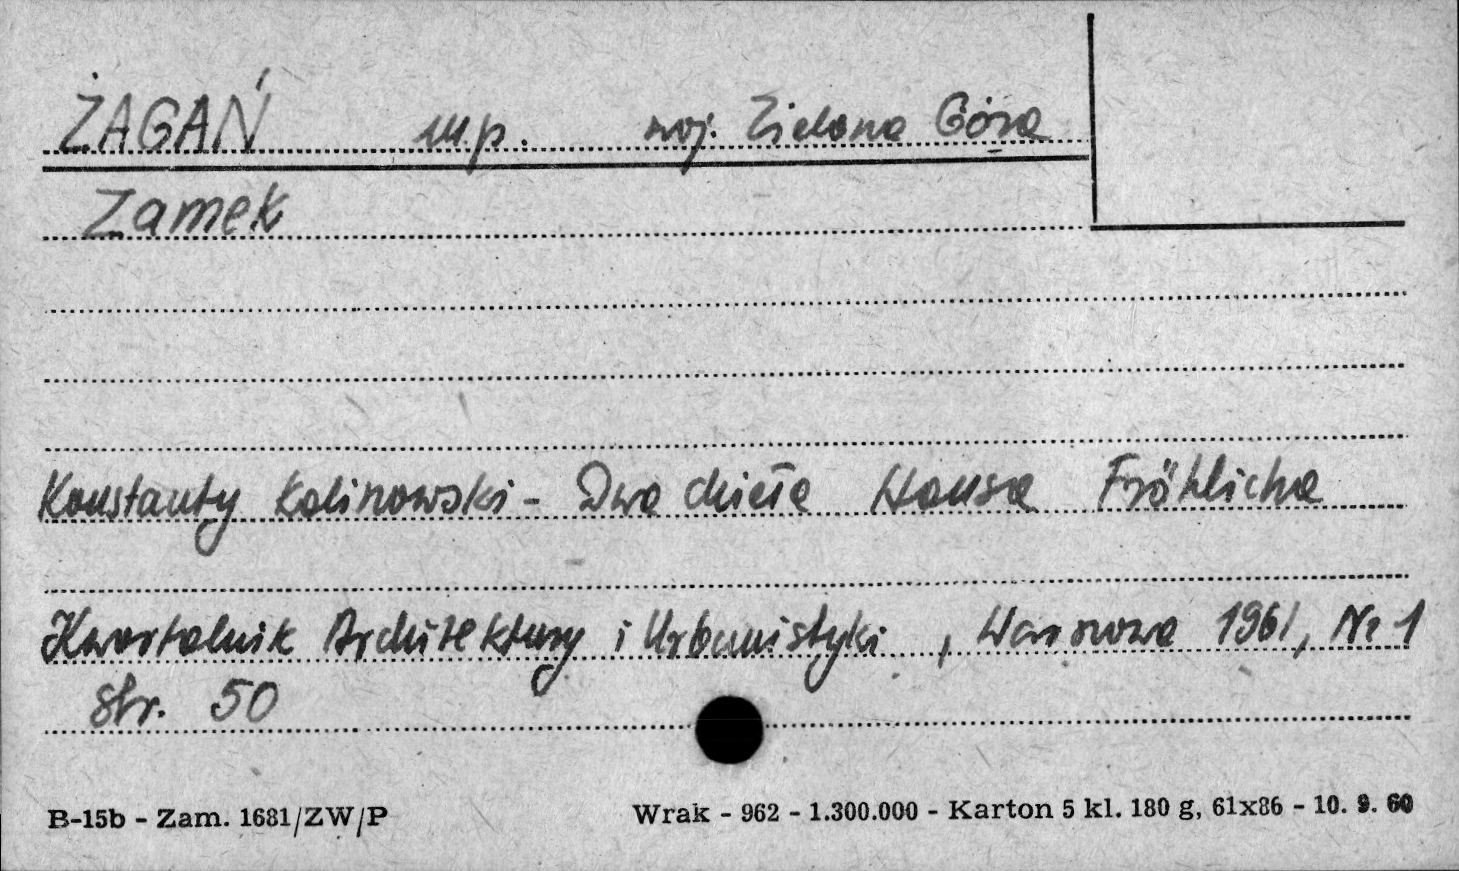 ŻAGAŃ m.p. woj. Zielona Góra
Zamek
Konstanty Kalinowski - Dwa dzieła Hansa Fröhlicha
Kwartalnik Architektury i Urbanistyki, Warszawa 1961, Nr 1
str. 50
B-15b - Zam. 1681/ZW/P Wrak - 962 - 1.300.000 - Karton 5 kl. 180 g, 61x86 - 10. 9. 60